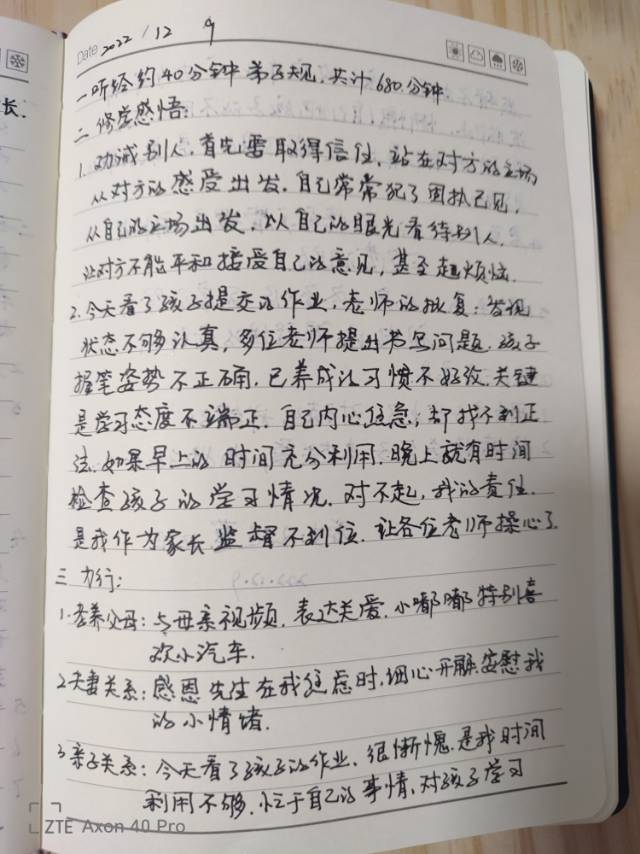 Date 2022/12 9
一 听经约40分钟 弟子规,共计680分钟
二 修学感悟:
1. 劝诫别人,首先需取得信任,站在对方的立场
从对方的感受出发,自己常常犯了固执己见,
从自己的立场出发,以自己的眼光看待别人,
让对方不能平和接受自己的意见,甚至起烦恼.
2. 今天看了孩子提交的作业,老师的批复:发现
状态不够认真,多位老师提出书写问题.孩子
握笔姿势不正确,已养成的习惯不好改,关键
是学习态度不端正.自己内心焦急,却找不到正
法.如果早上的时间充分利用,晚上就有时间
检查孩子的学习情况.对不起,我的责任.
是我作为家长监督不到位.让各位老师操心了
三 力行:
1. 孝养父母:与母亲视频,表达关爱.小嘟嘟特别喜
欢小汽车.
2. 夫妻关系:感恩先生在我焦虑时,细心开解安慰我
的小情绪.
3. 亲子关系:今天看了孩子的作业,很惭愧.是我时间
利用不够.忙于自己的事情,对孩子学习
长.
ZTE Axon 40 Pro